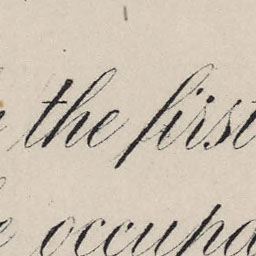 the first
occupa